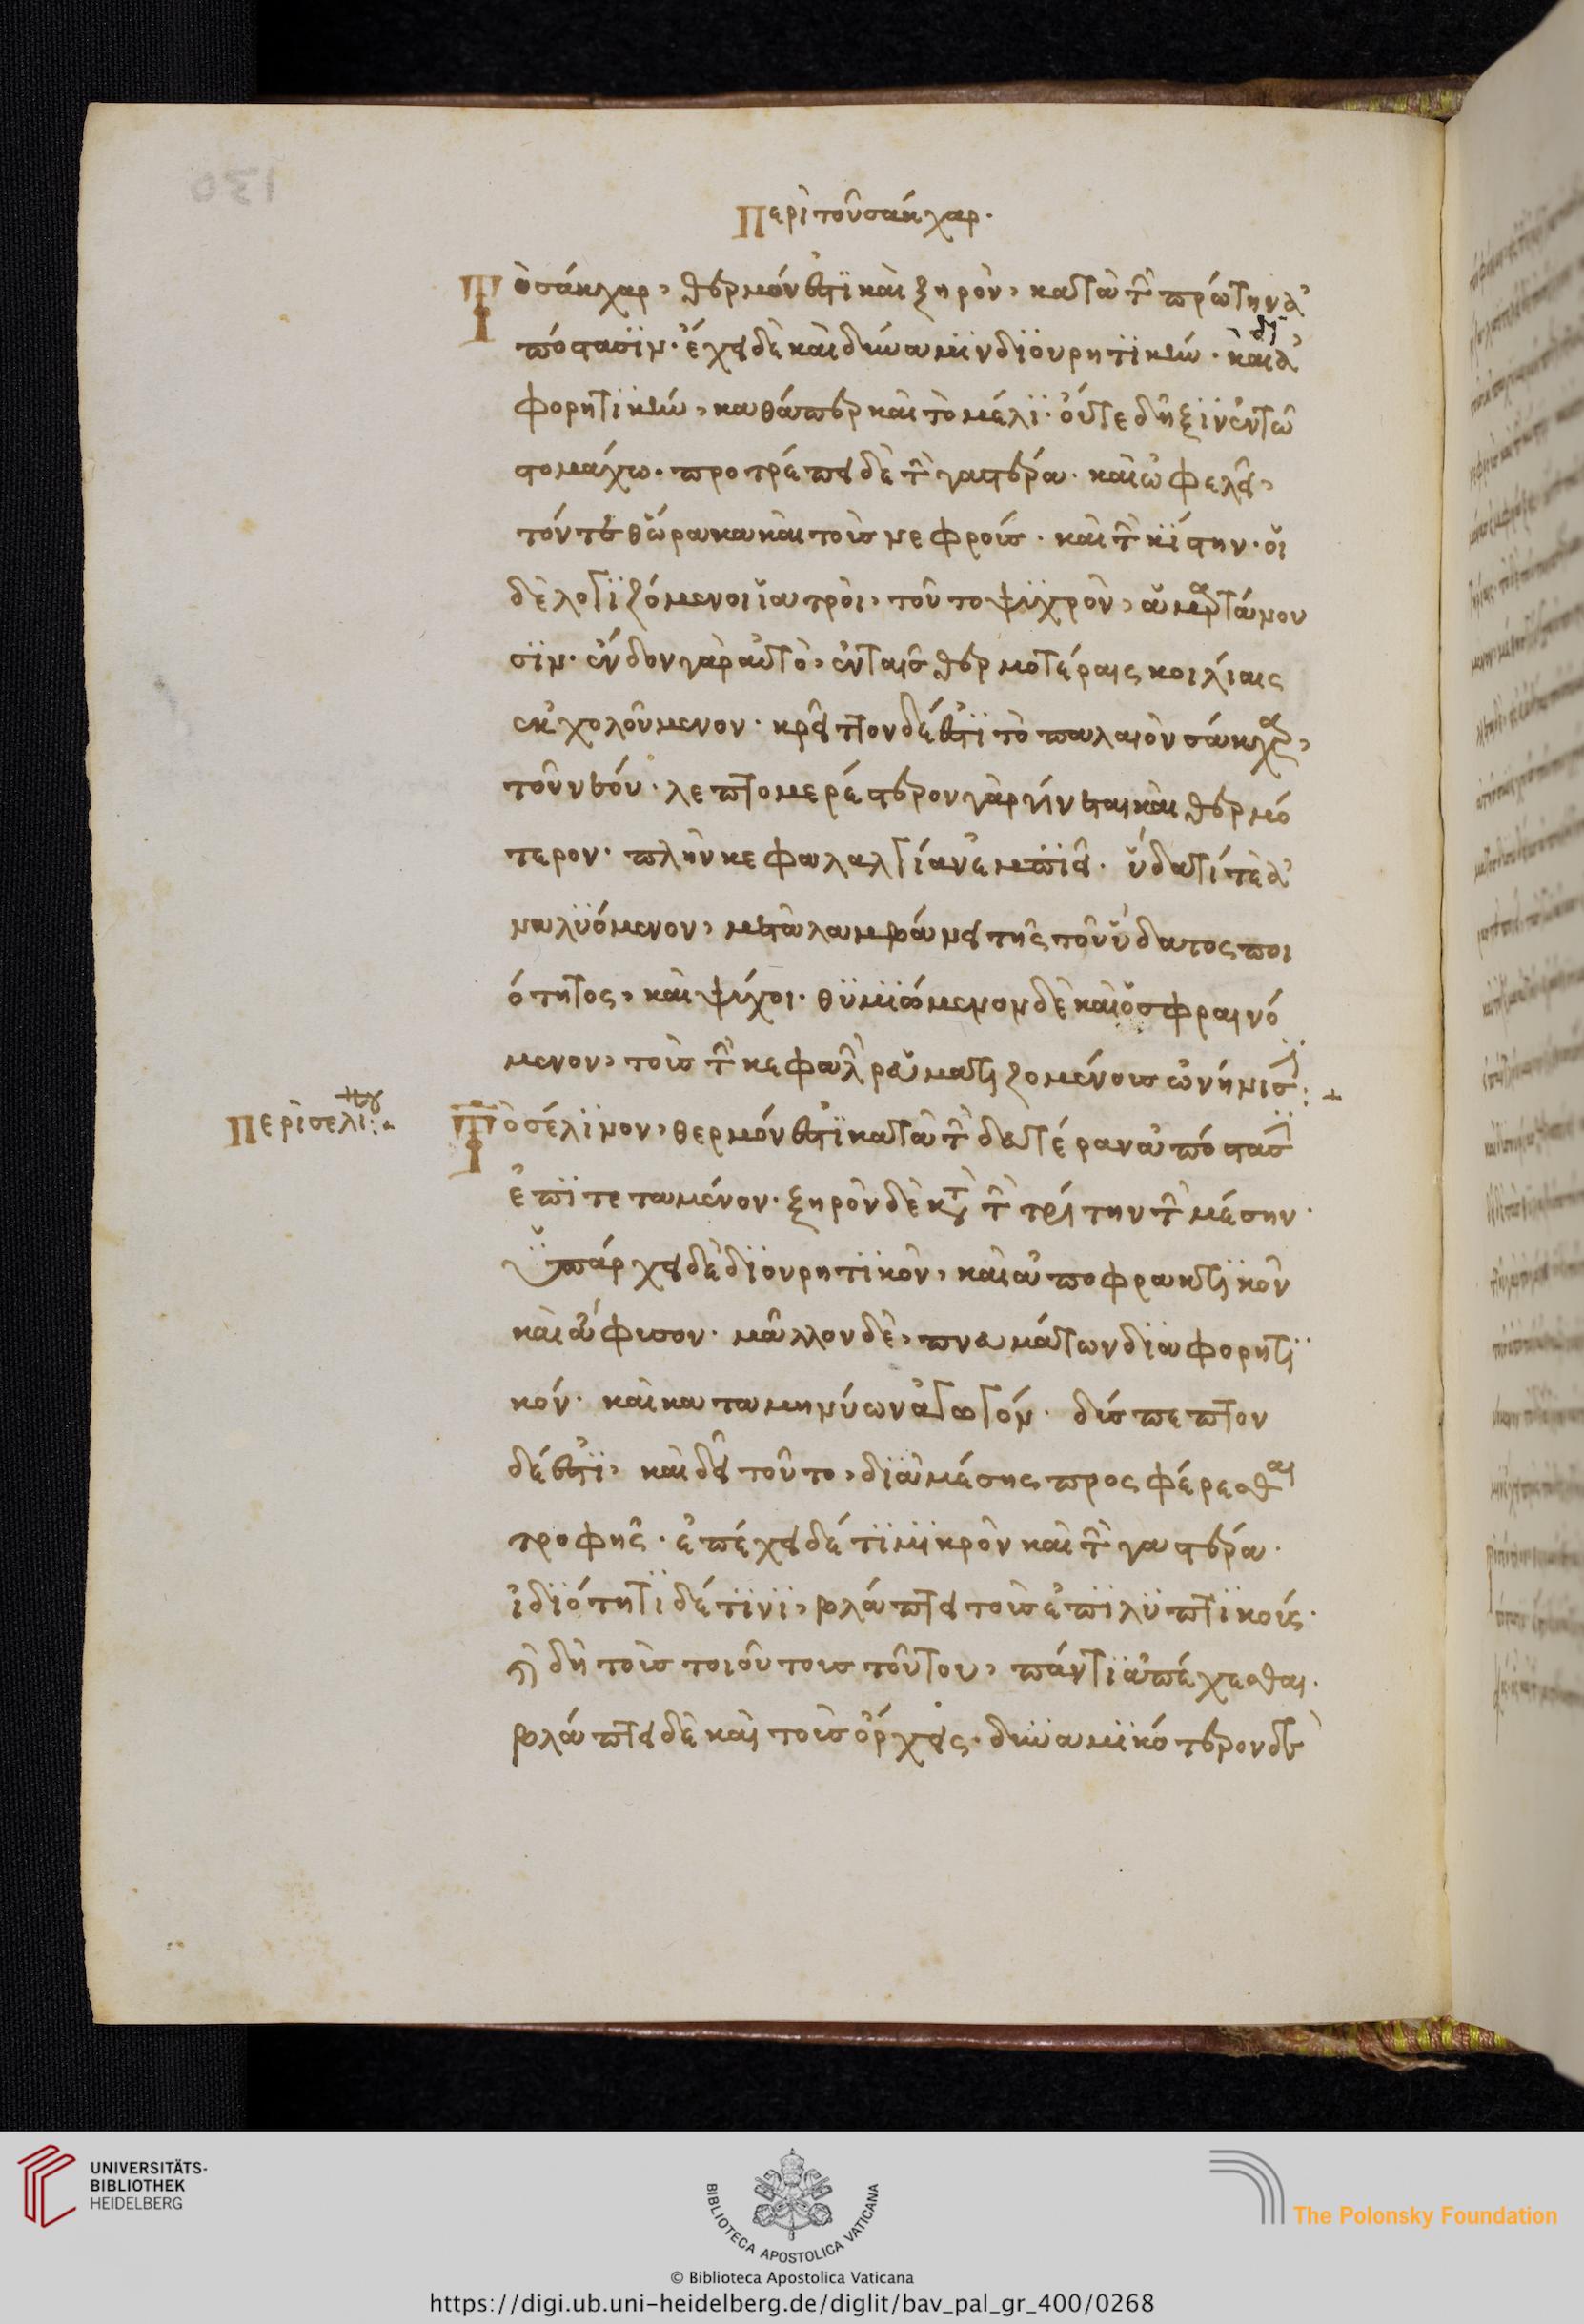 130
Περὶ τοῦ σάκχαρ.
Τὸ σάκχαρ, θερμόν ἐστι καὶ ξηρὸν, κατὰ τὴν πρώτην ἀ
πόστασιν. ἔχει δὲ καὶ δύναμιν διουρητικὴν. καὶ δι ἀ
φορητικὴν, καθάπερ καὶ τὸ μέλι. οὔτε δῆξιν ἐν τῶ
στομάχω. προτρέπει δὲ τὴν γαστέρα. καὶ ὠφελεῖ,
τόν τε θώρακα καὶ τοὺσ νεφρούσ. καὶ τὴν κύστην. οἱ
δὲ λογιζόμενοι ἰατρὸι, τοῦτο ψυχρὸν, ἁμαρτάνου
σιν. ἔνδον γὰρ αὐτὸ, ἐν ταισ θερμοτέραις κοιλίαις
ἐκχολοῦμενον. κρεῖττον δέ ἐστι τὸ παλαιὸν σάκχαρ,
τοῦ νέου. λεπτομερέστερον γὰρ γίνεται καὶ θερμό
τερον. πλὴν κεφαλαλγίαν ἐμποιεῖ. ὕδατί τε ἀ
ναλυόμενον, μεταλαμβάνει τῆς τοῦ ὕδατος ποι
ότητος, καὶ ψύχει. θυμιώμενον δὲ καὶ ὀσφραινό
μενον, τοὺσ τὴν κεφαλὴν ῥευματιζομένουσ ὠνήνισι :+
Περὶ σελίνου :+
Τὸ σέλινον, θερμόν ἐστι κατὰ τὴν δευτέραν ἀπόστασιν
ἐπιτεταμένον. ξηρὸν δὲ κατὰ τὴν τρίτην τὴν μέσην.
ὑπάρχει δὲ διουρητικὸν, καὶ ἀποφρακτικὸν
καὶ ἄφυσον. μᾶλλον δὲ, πνευμάτων διαφορητι
κόν. καὶ καταμηνύων ἀγωγόν. δύσπεπτον
δέ ἐστι, καὶ δεῖ τοῦτο, διὰ μέσης προσφέρεσθαι
τροφῆς. ἐπέχει δέ τι μικρὸν καὶ τὴν γαστέρα.
ἰδιότητι δέ τινι, βλάπτει τοὺσ ἐπιλυπτικούς.
δεῖ δὴ τοὺσ τοιοῦτουσ τοῦτου, πάντη ἀπέχεσθαι.
βλάπτει δὲ καὶ τοὺσ ὄρχεις. δυναμικότερον δὲ
UNIVERSITÄTS-
BIBLIOTHEK
HEIDELBERG
BIBLIOTECA APOSTOLICA VATICANA
The Polonsky Foundation
© Biblioteca Apostolica Vaticana
https://digi.ub.uni-heidelberg.de/diglit/bav_pal_gr_400/0268